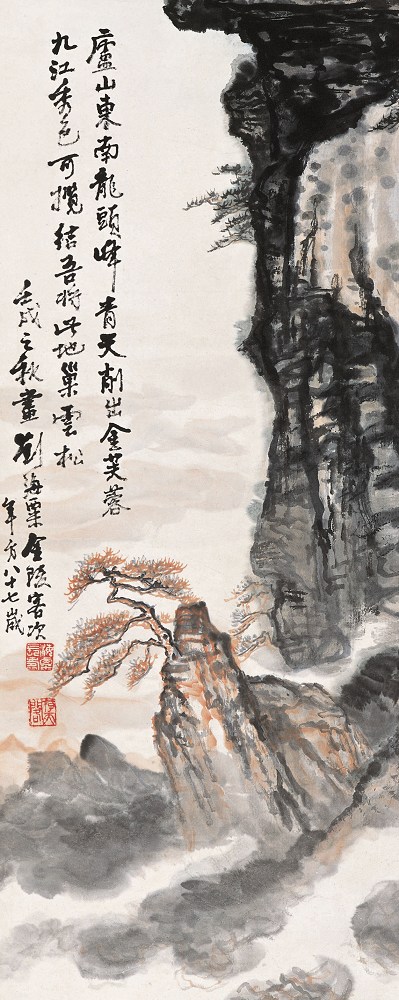 廬山東南龍頭峰青天削出金芙蓉
九江秀色可攬結吾將此地巢雲松
壬戌之秋畫劉海粟金陵客次
年方八十七歲